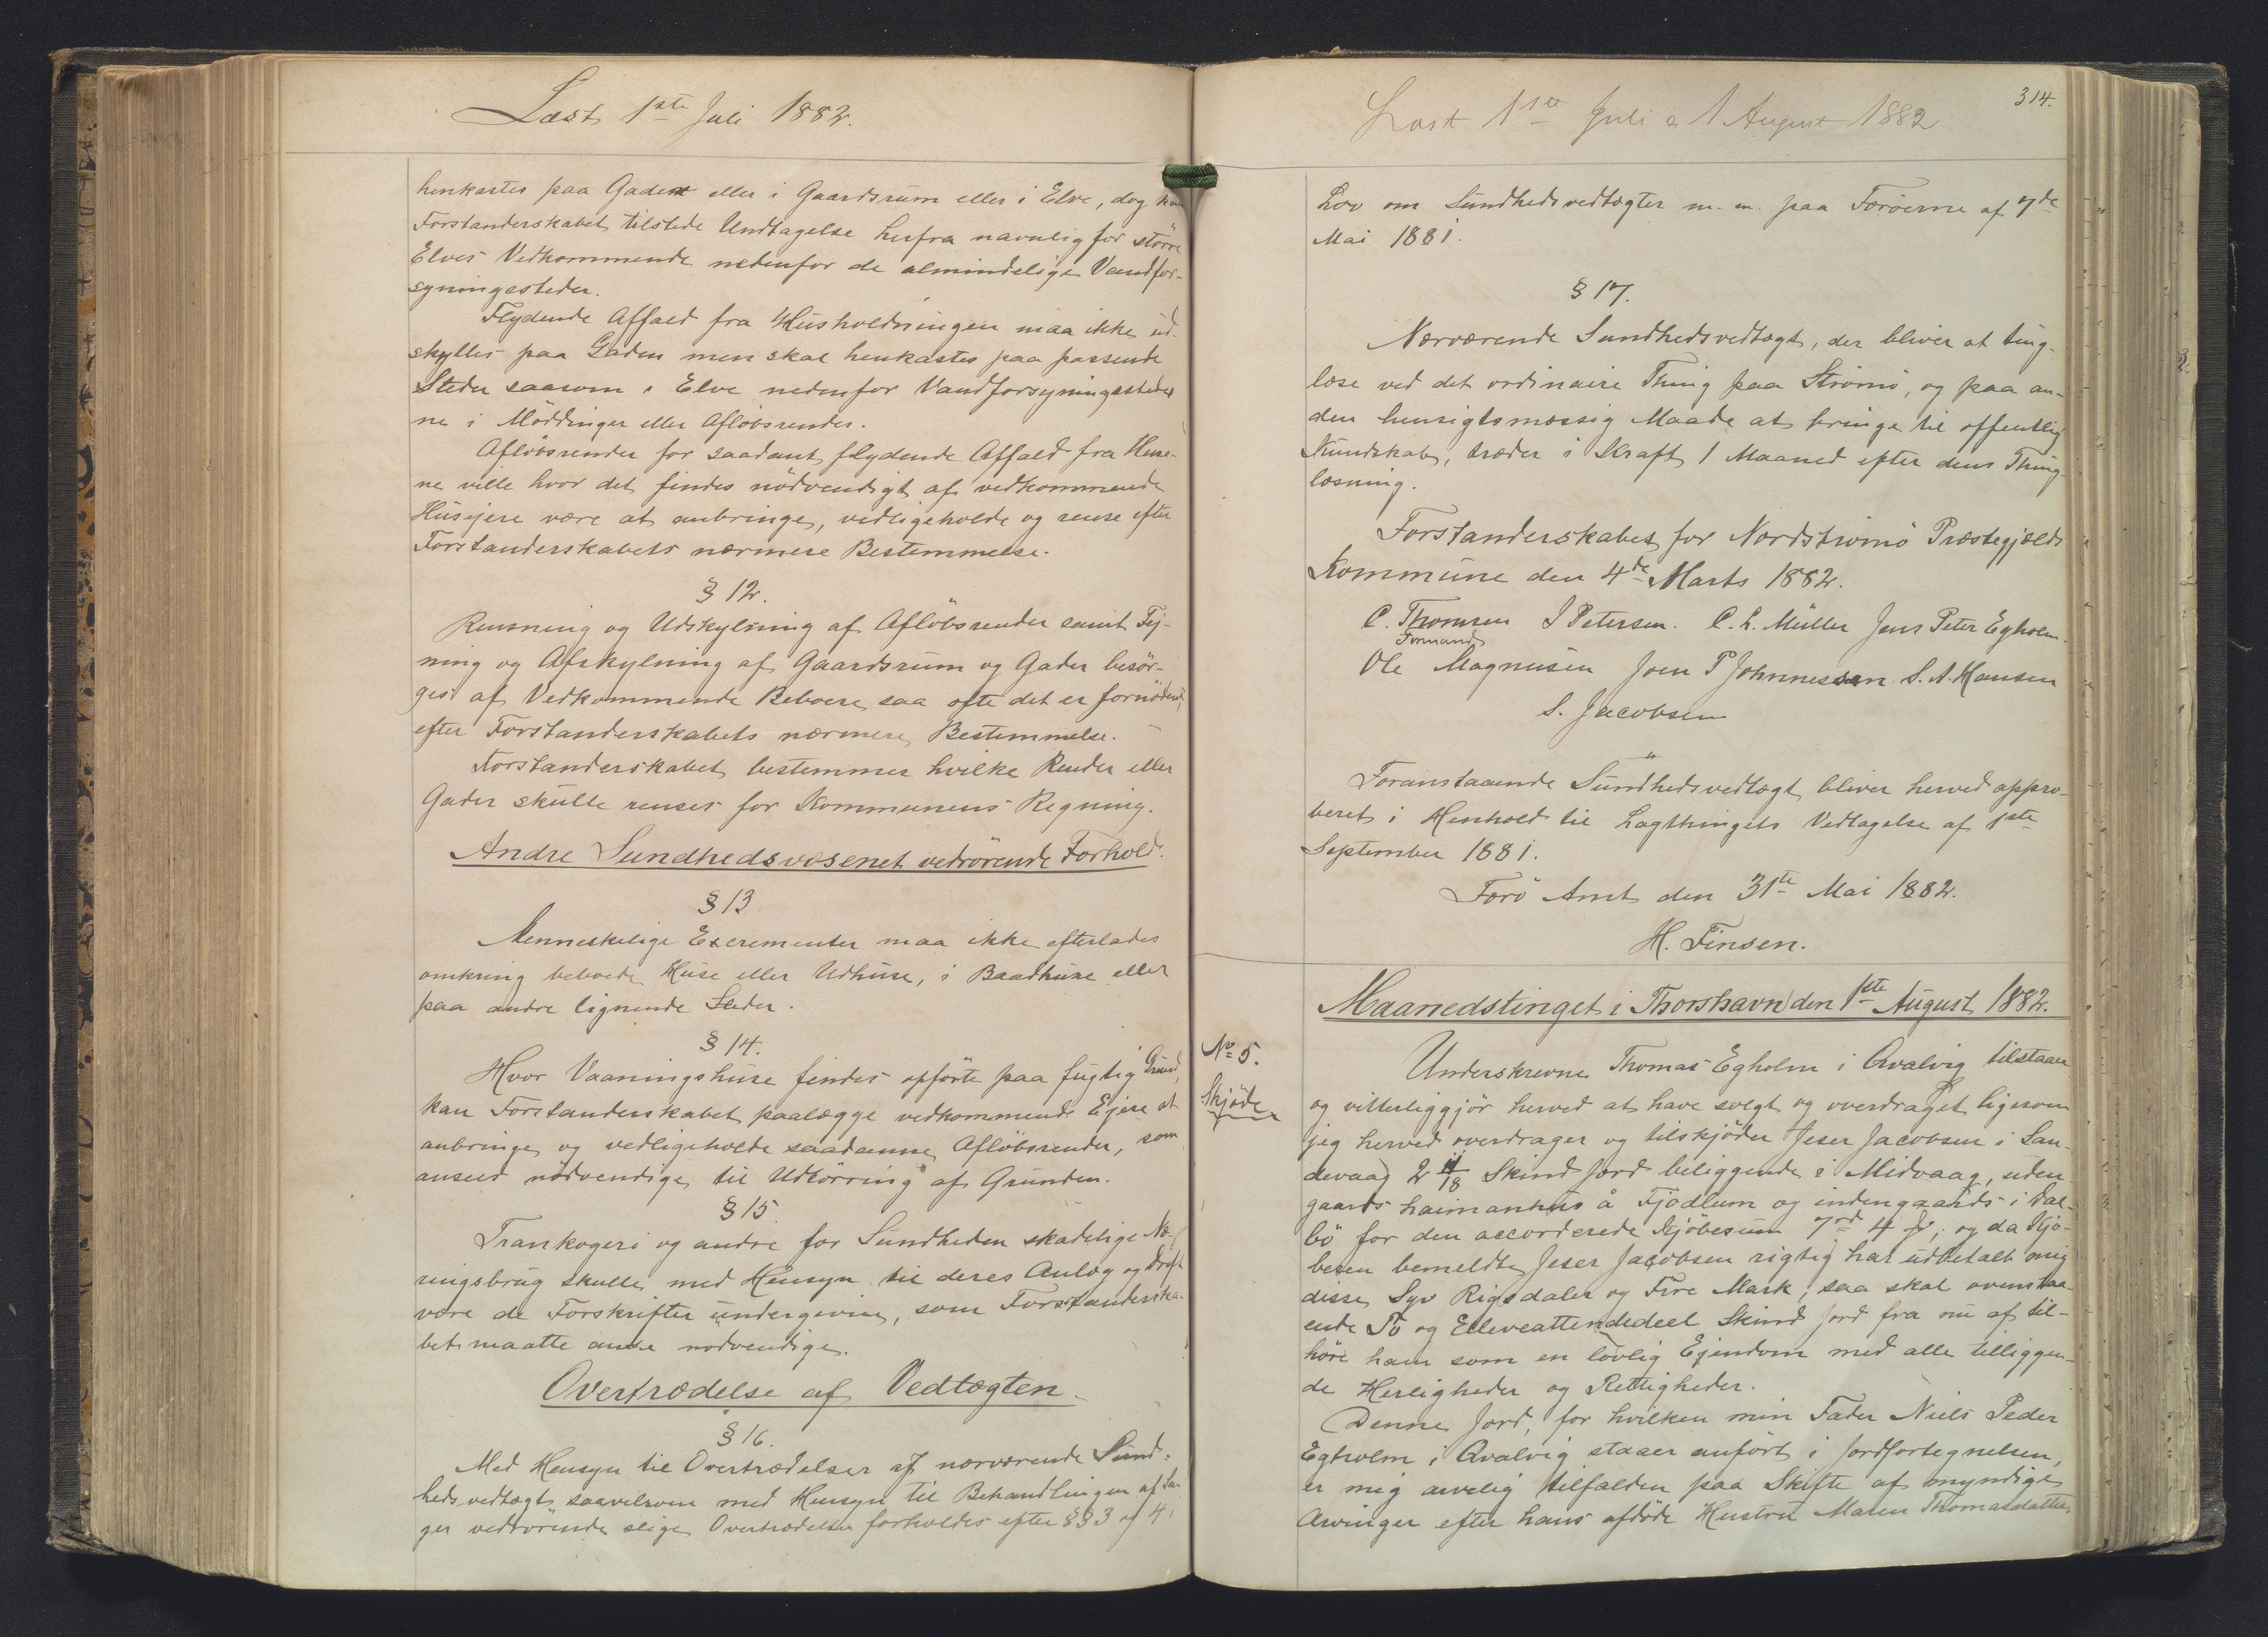 Læst 1ste Juli 1882.
henkastes paa Gaden eller i Gaardsrum eller i Elve, dog kan
Forstanderskabet tilstede Undtagelse herfra navnlig for större
Elves Vedkommende nedenfor de almindelige Vandfor-
syningssteder.
Flydende Affald fra Husholdningen maa ikke ud-
skylles paa Gaden men skal henkastes paa passende
Steder saasom i Elve nedenfor Vandforsyningssteder
ne i Möddinger eller Aflöbsrender.
Aflöbsrender for saadant flydende Affald fra Huse-
ne ville hvor det findes nödvendigt af vedkommende
Husejere være at anbringe, vedligeholde og rense efter
Forstanderskabets nærmere Bestemmelse.
§ 12.
Rensning og Udskylning af Aflöbsrender samt Fej-
ning og Afskylning af Gaardsrum og Gader besör-
ges af Vedkommende Beboere saa ofte det er fornödent,
efter Forstanderskabets nærmere Bestemmelse.
Forstanderskabet bestemmer hvilke Render eller
Gader skulle renses for Kommunens Regning.
Andre Sundhedsvæsenet vedrörende Forhold.
§ 13
Menneskelige Excrementer maa ikke efterlades
omkring beboede Huse eller Udhuse, i Baadhuse eller
paa andre lignende Steder.
§ 14.
Hvor Vaaningshuse findes opförte paa fugtig Grund,
kan Forstanderskabet paalægge vedkommende Ejere at
anbringe og vedligeholde saadanne Aflöbsrender, som
ansees nödvendige til Udtörring af Grunden.
§ 15.
Trankogeri og andre for Sundheden skadelige Næ-
ringsbrug skulle med Hensyn til deres Anlæg og Drift
være de Forskrifter undergivne, som Forstanderska-
bet maatte anse nödvendige.
Overtrædelse af Vedtægten.
§ 16.
Med Hensyn til Overtrædelser af nærværende Sund-
hedsvedtægt saavelsom med Hensyn til Behandlingen af Sa-
ger vedrörende slige Overtrædelser forholdes efter §§ 3 og 4 i
314.
Læst 1ste Juli & 1 August 1882
Lov om Sundhedsvedtægter m. m. paa Færöerne af 7de
Mai 1881.
§ 17.
Nærværende Sundhedsvedtægt, der bliver at ting-
læse ved det ordinaire Thing paa Strömö, og paa an-
den hensigtsmæssig Maade at bringe til offentlig
Kundskab, træder i Kraft 1 Maaned efter dens Thing-
læsning.
Forstanderskabet for Nordströmö Præstegjælds
Kommune den 4de Marts 1882.
C. Thomsen J Petersen. C. L. Müller Jens Peter Egholm.
Formand
Ole Magnusen Joen P Johnnessen S. A. Hansen
S. Jacobsen
Foranstaaende Sundhedsvedtægt bliver herved appro-
beret i Henhold til Lagthingets Vedtagelse af 1ste
September 1881.
Færö Amt den 31te Mai 1882.
H. Finsen.
Maanedstinget i Thorshavn den 1ste August 1882.
No 5.
Skjöde
Underskrevne Thomas Egholm i Qvalvig tilstaaer
og vitterliggjör herved at have solgt og overdraget ligesom
jeg herved overdrager og tilskjöder Jeser Jacobsen i San-
devaag 2 11/18 Skind Jord beliggende i Midvaag, uden-
gaards haimanhus å Fjødlum og indengaards i Dal-
bö for den accorderede Kjöbesum 7rd 4 ß; og da Kjö-
beren bemeldte Jeser Jacobsen rigtig har udbetalt mig
disse Syv Rigsdaler og Fire Mark, saa skal ovenstaa-
ende To og Elleveattendedeel Skind Jord fra nu af til-
höre ham som en lovlig Ejendom med alle tilliggen-
de Herligheder og Rettigheder.
Denne Jord, for hvilken min Fader Niels Peder
Egholm i Qvalvig staaer anfört i Jordfortegnelsen,
er mig arvelig tilfalden paa Skifte af myndige
Arvinger efter hans afdöde Hustru Maren Thomasdatter,